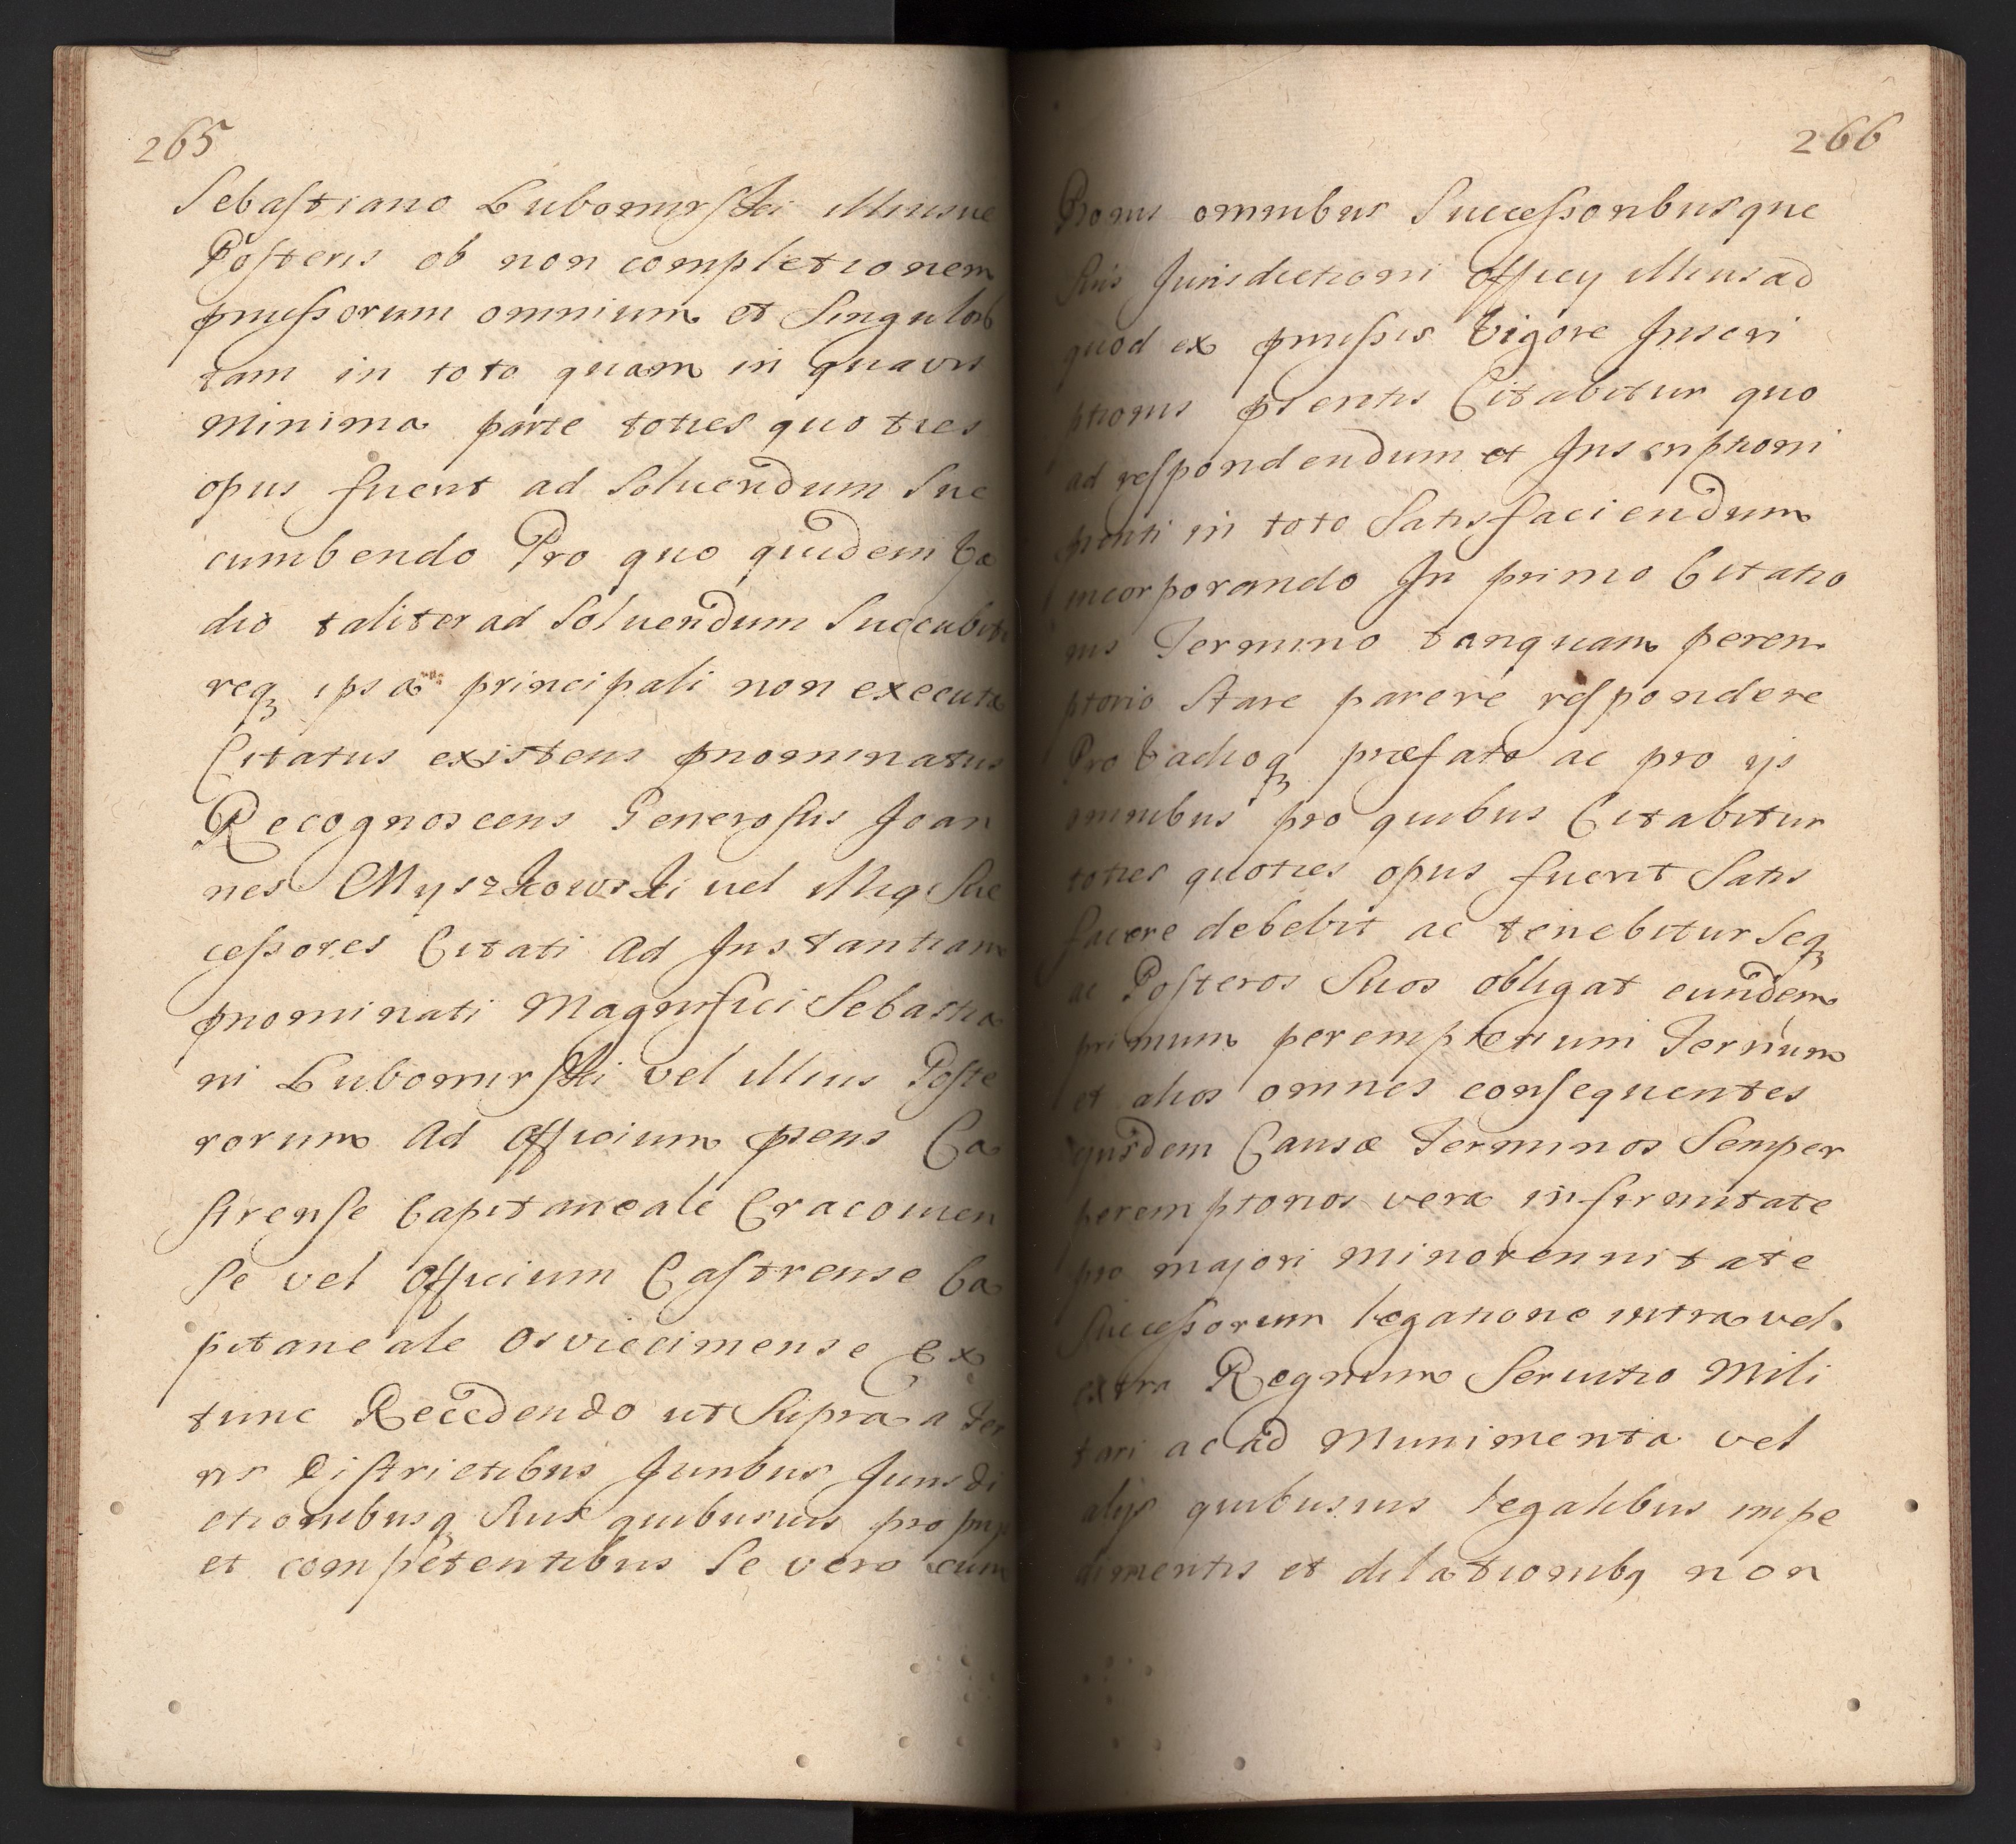 265
Sebastiano Lubomirski illiusue
Posteris ob non completionem
pmissorum omnium et Singulorb
tam in toto quam in quavis
minima parte toties quoties
opus fuerit ad Soluendum Suc
cumbendo Pro quo quidem Va
dio taliter ad Soluendum Succubito
req ipsa principali non executa
Citatus existens pnominatus
Recognoscens Generosus Joan
nes Myszkowski uel illiq Suc
cessores Citati Ad Instantiam
pnominati Magnifici Sebastia
ni Lubomirski vel illius Poste
rorum Ad Officium psens Ca
strense Capitaneale Cracouien
se vel Officium Castrense Ca
pitaneale Osviecimense Ex
tunc Recedendo ut Supra a Ter
ris Districtibus Juribus Jurisdi
ctionibusq Suis quibusuis pro
et competentibus Se vero cum
266
Bonis omnibus Successoribusque
Suis Jurisdictioni Officij illius ad
quod ex pmissis Vigore Inscri
ptionis psentis Citabitur quo
ad respondendum et Inscriptioni
psenti in toto Satisfaciendum
incorporando In primo Citatio
nis Termino tanquam perem
ptorio Stare parere respondere
Pro Vadioq præfato ac pro ijs
omnibus pro quibus Citabitur
toties quoties opus fuerit Satis
facere debebit ac tenebitur Seq
ac Posteros Suos obligat eundem
primum peremptorium Terminum
et alios omnes consequentes
ejusdem Causæ Terminos Semper
peremptorios vera infirmitate
pro majori minorennitate
Successorum legatione intra vel
extra Regnum Seruitio Mili
tari ac ad Munimenta vel
alijs quibusuis legalibus impe
dimentis et dilationibq non